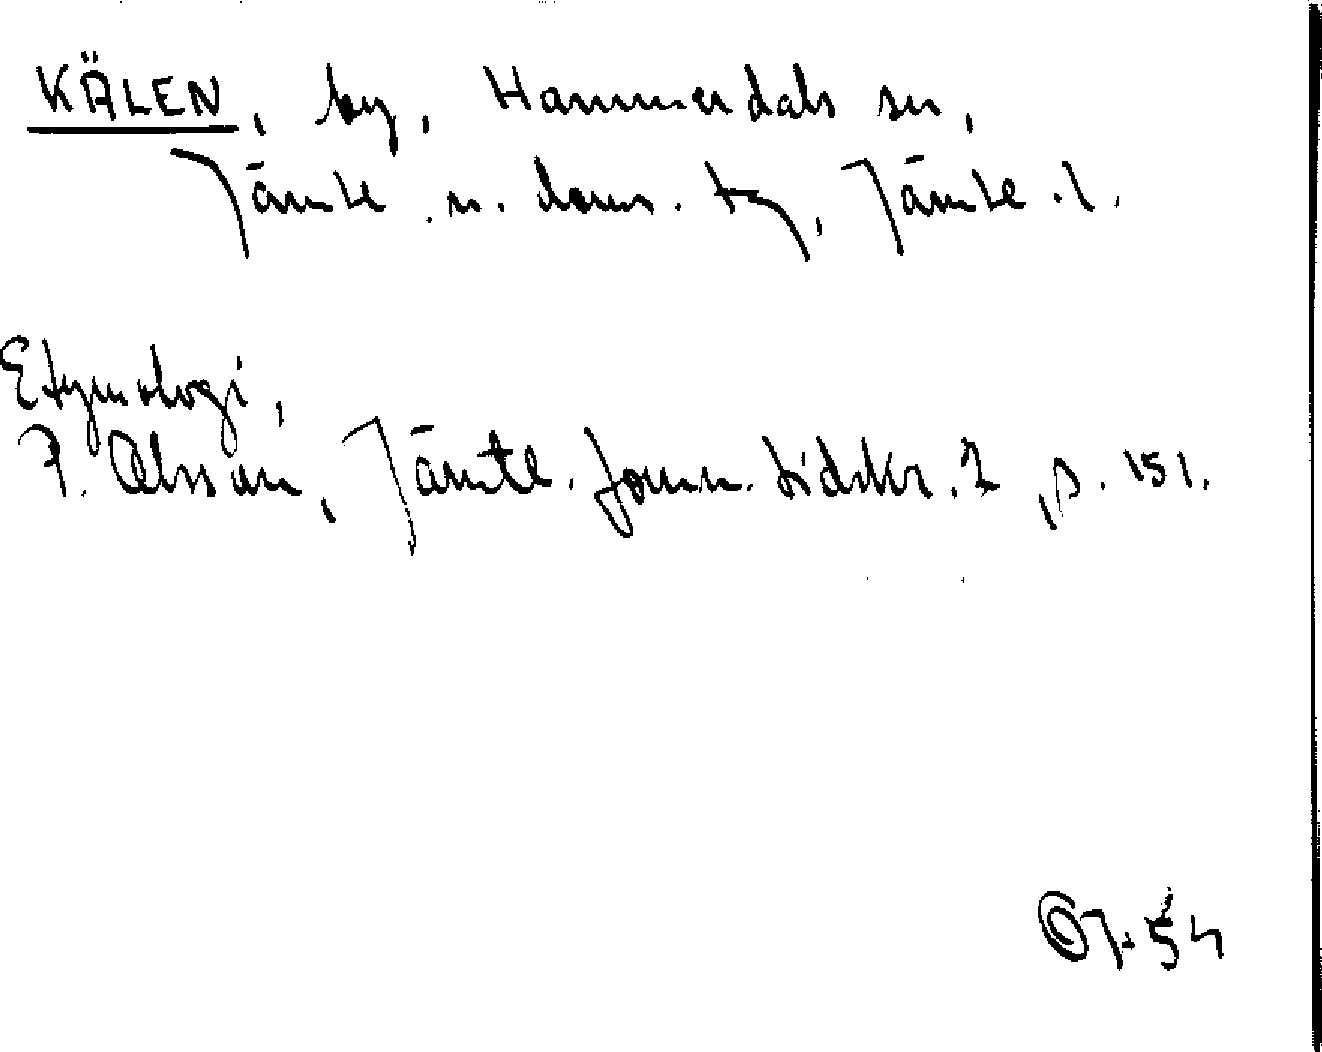 KÄLEN, by, Hammerdals sn,
Jämtl. n. doms. tg, Jämtl. l.
Etymologi,
P. Olsson, Jämtl. fornm. tidskr. 2, s. 151.
54